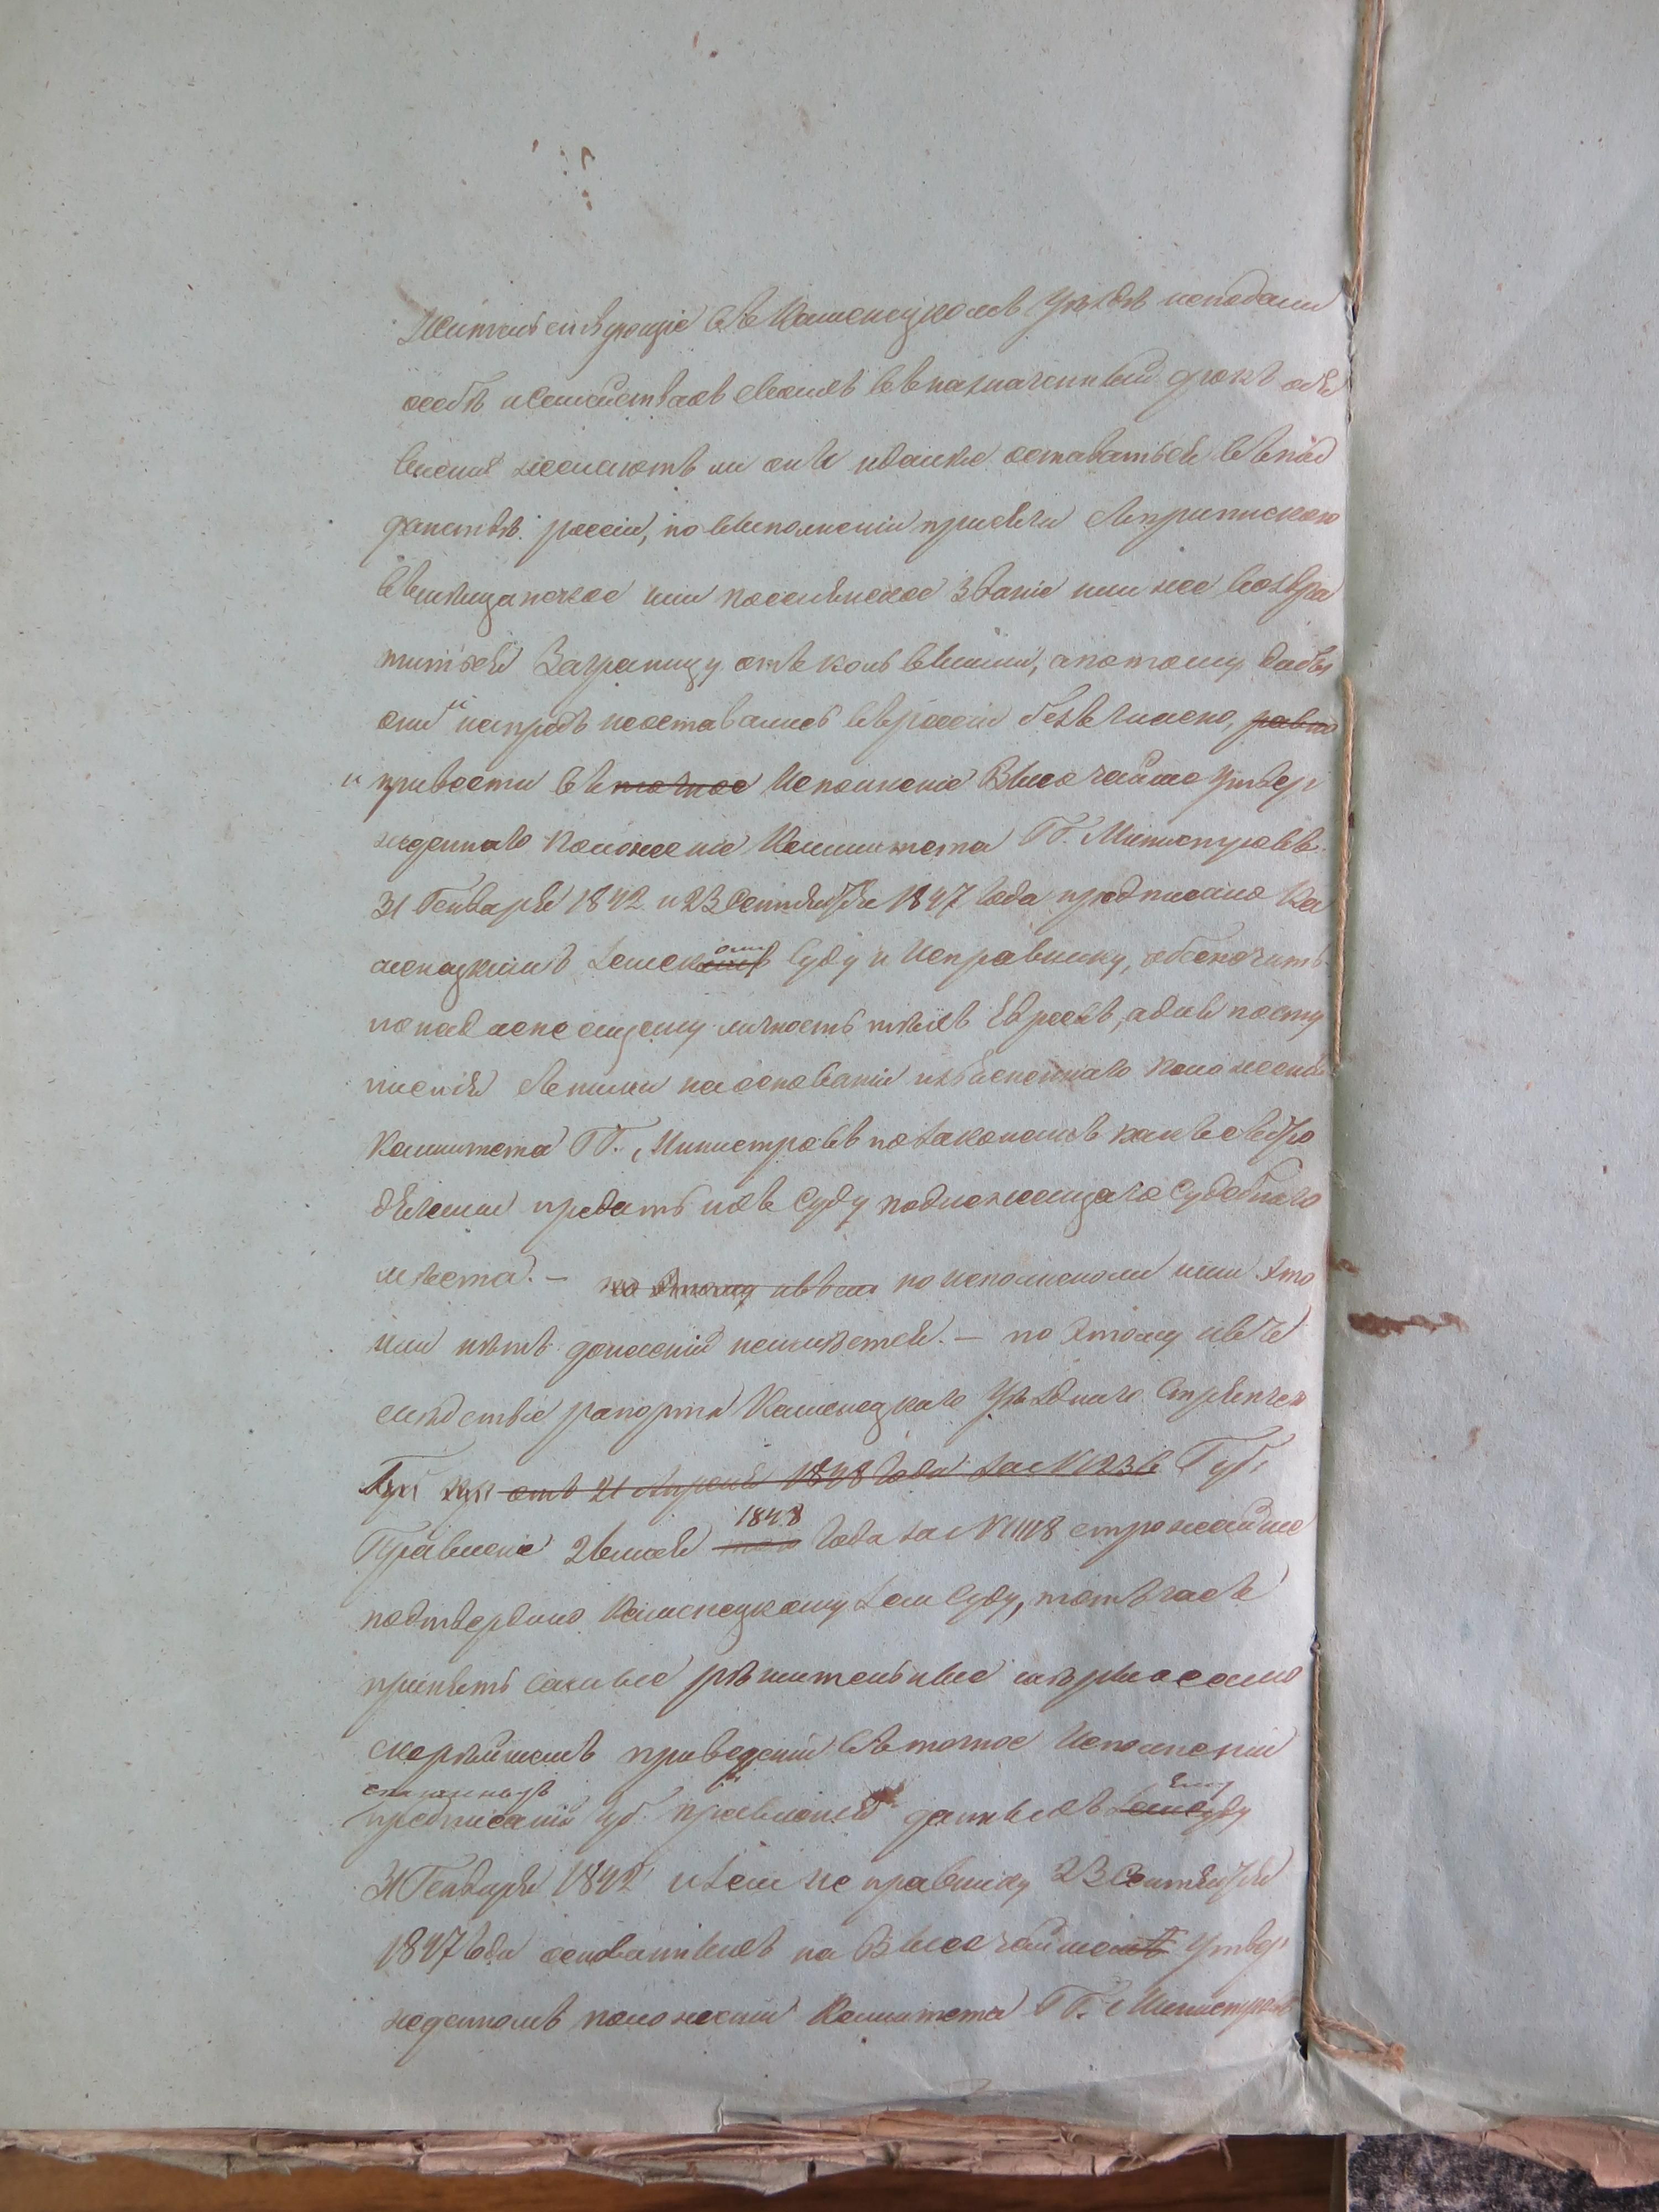 Жительствующіе въ Каменецкомъ Уѣздѣ неподали
особѣ исемействахъ своихъ въ назначенный срокъ объя
вленія желаютъ ли они идалѣе оставаться въ под
данствѣ россіи, по выполненіи присяги съ припискою
въ мѣщанское или поселянское званіе или же возвра
титься Заграницу откель вышли, а потому дабы
они напредь неоставались въ россіи безъ числено, равно
и привести въ точное Исполненіе Высочайше утвер
жденнаго Положенія Комитета ГГ. Министровъ
31 Генваря 1842 и 23 Сентября 1847 года предписано Ка
менецкимъ Земскому Суду и Исправнику, обезпечить
понадлежащему личность тѣхъ Евреевъ, а для посту
пленія съ ними на основаніи изъясненнаго положенія
Комитета ГГ. Министровъ по законамъ какъ съ бро
дягами предать ихъ Суду подлежащаго Судебнаго
мѣста. — по этому но исполнено ли ими это
или нѣтъ донесеній неимѣется. — по этому и въ
слѣдствіе рапорта Каменецкаго Уѣзднаго Стряпчего
отъ 21 Апреля 1848 года за № 236 Губ.
Правленіе 2 1848 года за № строжайше
подтвердило Каменецкому Зем Суду, тотъ часъ
принять самые рѣшительные мѣры о само
скорѣйшемъ приведеніи въ точное Исполненіи
предписаній Губ. правленія данныхъ ему
31 Генваря 1842 и Зем исправнику 23 Сентября
1847 года основанныхъ на Высочайше утвер
жденномъ положеніи Комитета ГГ. Министровъ